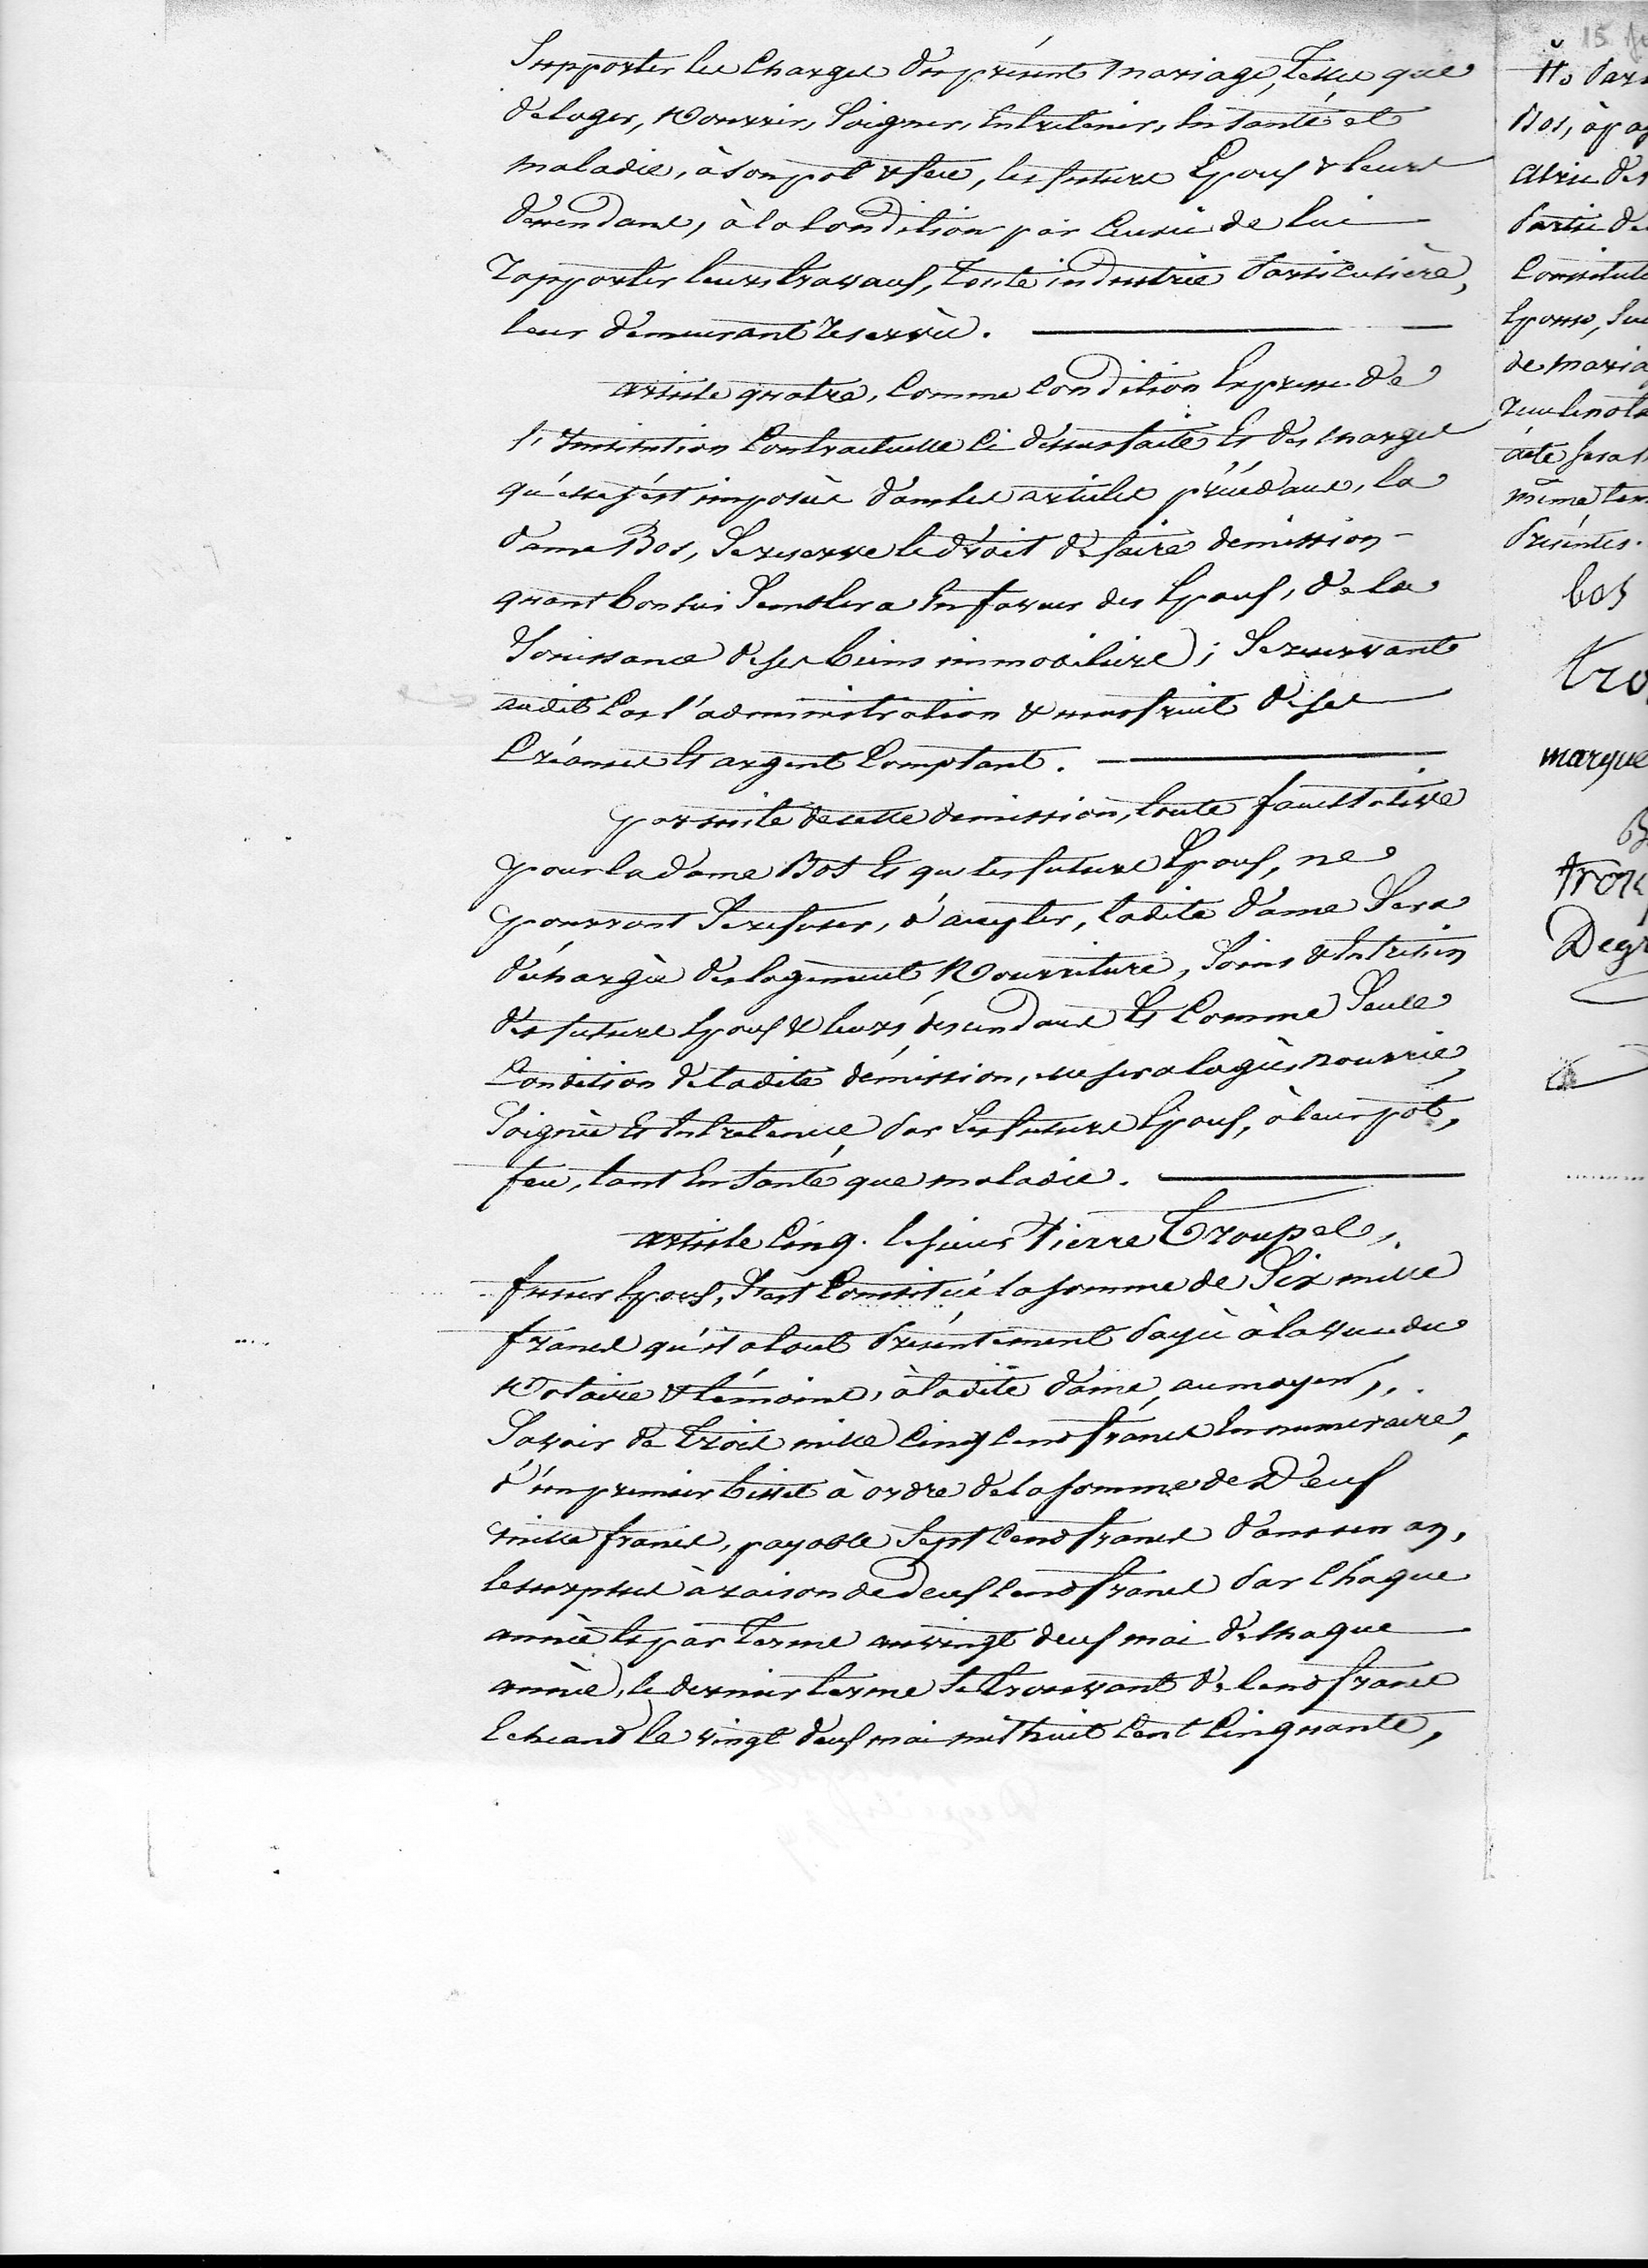 Supporter les Charges du présent Mariage, telles que
de loger, Nourrir, Soigner, Entretenir, En Santé et
maladie, à son pot & feu, les futurs Epoux & leurs
descendans, à la Condition par Ceux ci de lui
rapporter leurs travaux, toute industrie Particulière,
leur demeurant reservée.
article quatre, Comme Condition Expresse de
l'Institution Contractuelle Ci dessus faite Et des charges
qu'elle s'est imposée dans les articles précédans, la
dame Bos, Se reserve le droit de faire démission
quant bon lui Semblera En faveur des Epoux, de la
Jouissance de ses biens immobiliers; Se reservant
audit Cas l'administration & usufruit de ses
Créances Et argent Comptant.
par suite de cette démission, toute facultative
pour la dame Bos Et que les futurs Epoux, ne
pourront Se refuser, d'accepter, ladite dame Sera
déchargée des logement Nourriture, Soins & Entretien
des futurs Epoux & leurs descendans Et Comme Seule
Condition de ladite démission, elle sera logée, nourrie,
Soignée Et Entretenue par Les futurs Epoux, à leur pot,
feu, tant En Santé que maladie.
article Cinq. le sieur Pierre Troupel,
futur Epoux, S'est Constitué la somme de Six mille
francs qu'il a tout Présentement Payée à la vue du
Notaire & témoins, à ladite dame, au moyen,
Savoir de trois mille Cinq Cens francs En numeraire,
d'un premier billet à ordre de la somme de Deux
mille francs, payable Sept Cens francs dans un an,
le surplus à raison de deux Cens francs Par Chaque
année Et par terme au vingt deux mai de chaque
année, le dernier terme Se trouvant de Cens francs
Echeand le vingt deux mai mil huit Cent Cinquante,
15
Bos, à
Partie de
Constitut
Epouse,
de maria
acte sera
même tem
Présentes.
bos
tro
marque
Degr